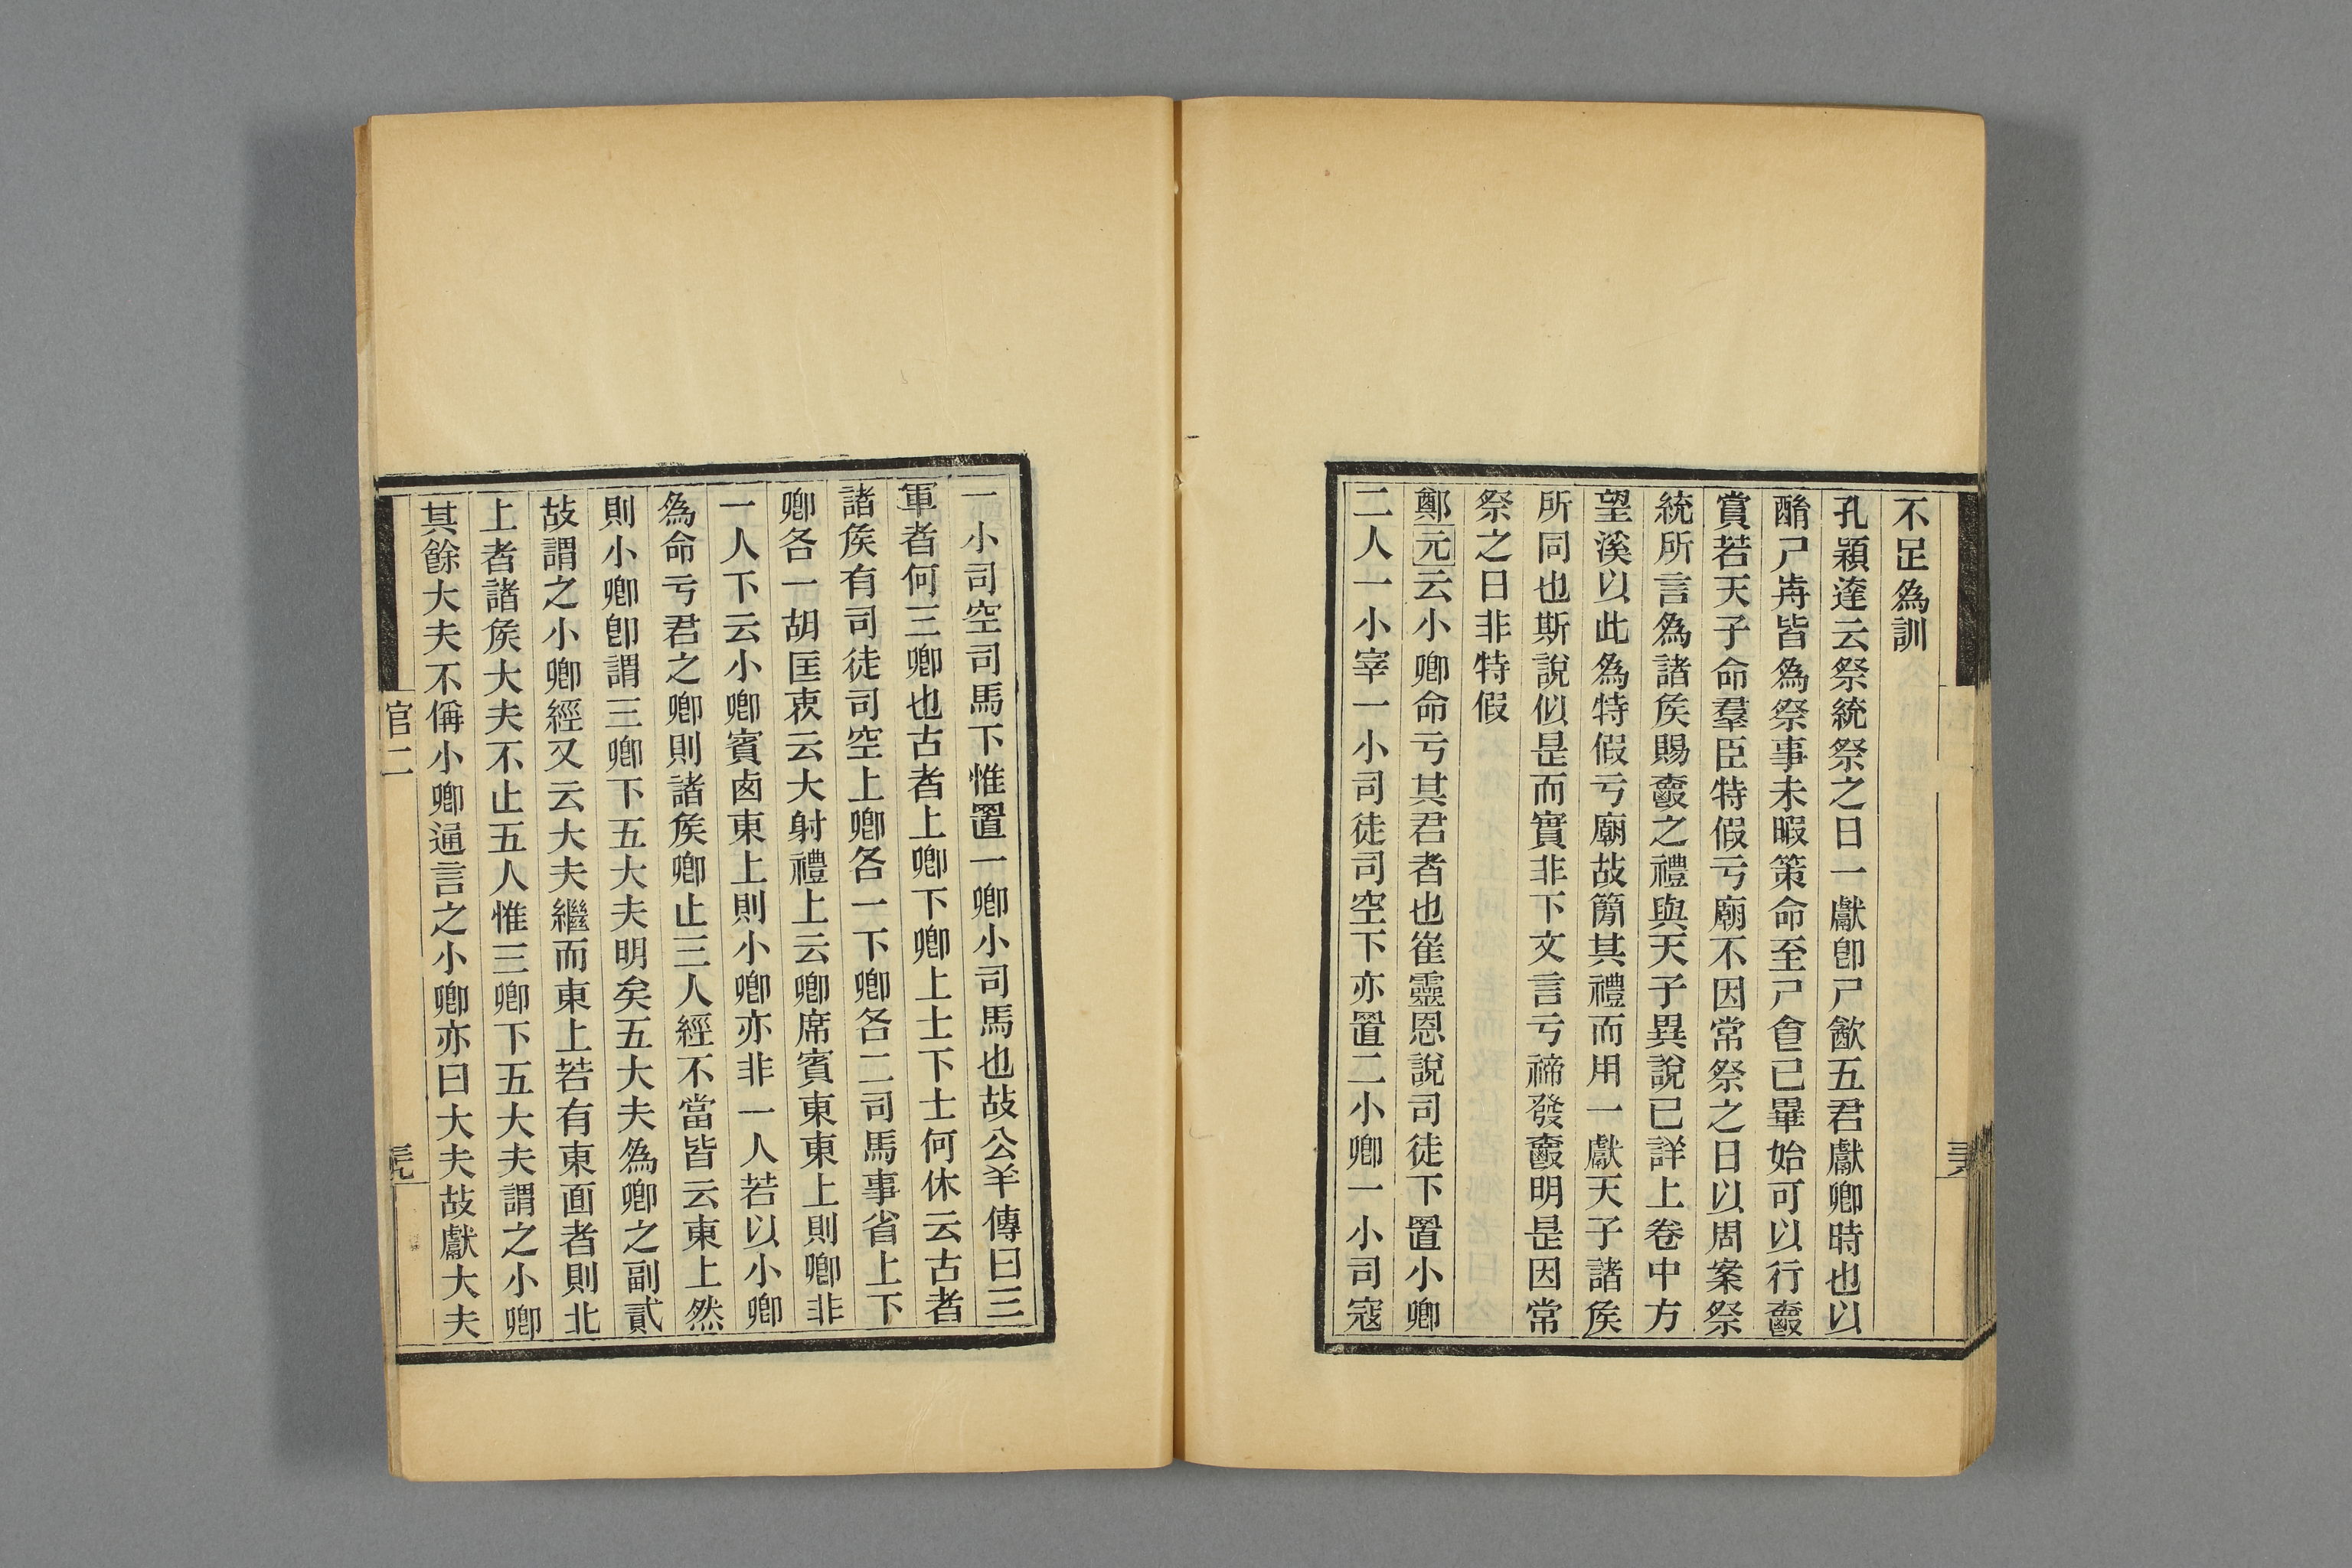 不足為訓
孔穎達云祭統祭之日一獻卽尸歓五君獻卿時也以
酳尸歬皆為祭事未暇策命至尸𠊊已畢始可以行𤔲
賞若天子命羣臣特假亏廟不因常祭之日以周案祭
統所言為諸矦賜𤔲之禮與天子異說已詳上卷中方
望溪以此為特假亏廟故簡其禮而用一獻天子諸矦
所同也斯說似是而實非下文言亏禘發𤔲明是因常
祭之日非特假
鄭元云小卿命亏其君者也崔靈恩說司徒下置小卿
二人一小宰一小司徒司空下亦置二小卿一小司寇
三六
一小司空司馬下惟置一卿小司馬也故公羊傳曰三
軍者何三卿也古者上卿下卿上士下士何休云古者
諸矦有司徒司空上卿各一下卿各二司馬事省上下
卿各一胡匡衷云大射禮上云卿席賓東東上則卿非
一人下云小卿賓卤東上則小卿亦非一人若以小卿
為命亏君之卿則諸矦卿止三人經不當皆云東上然
則小卿卽謂三卿下五大夫明矣五大夫為卿之副貳
故謂之小卿經又云大夫繼而東上若有東面者則北
上者諸矦大夫不止五人惟三卿下五大夫謂之小卿
其餘大夫不偁小卿通言之小卿亦曰大夫故獻大夫
官二
三九